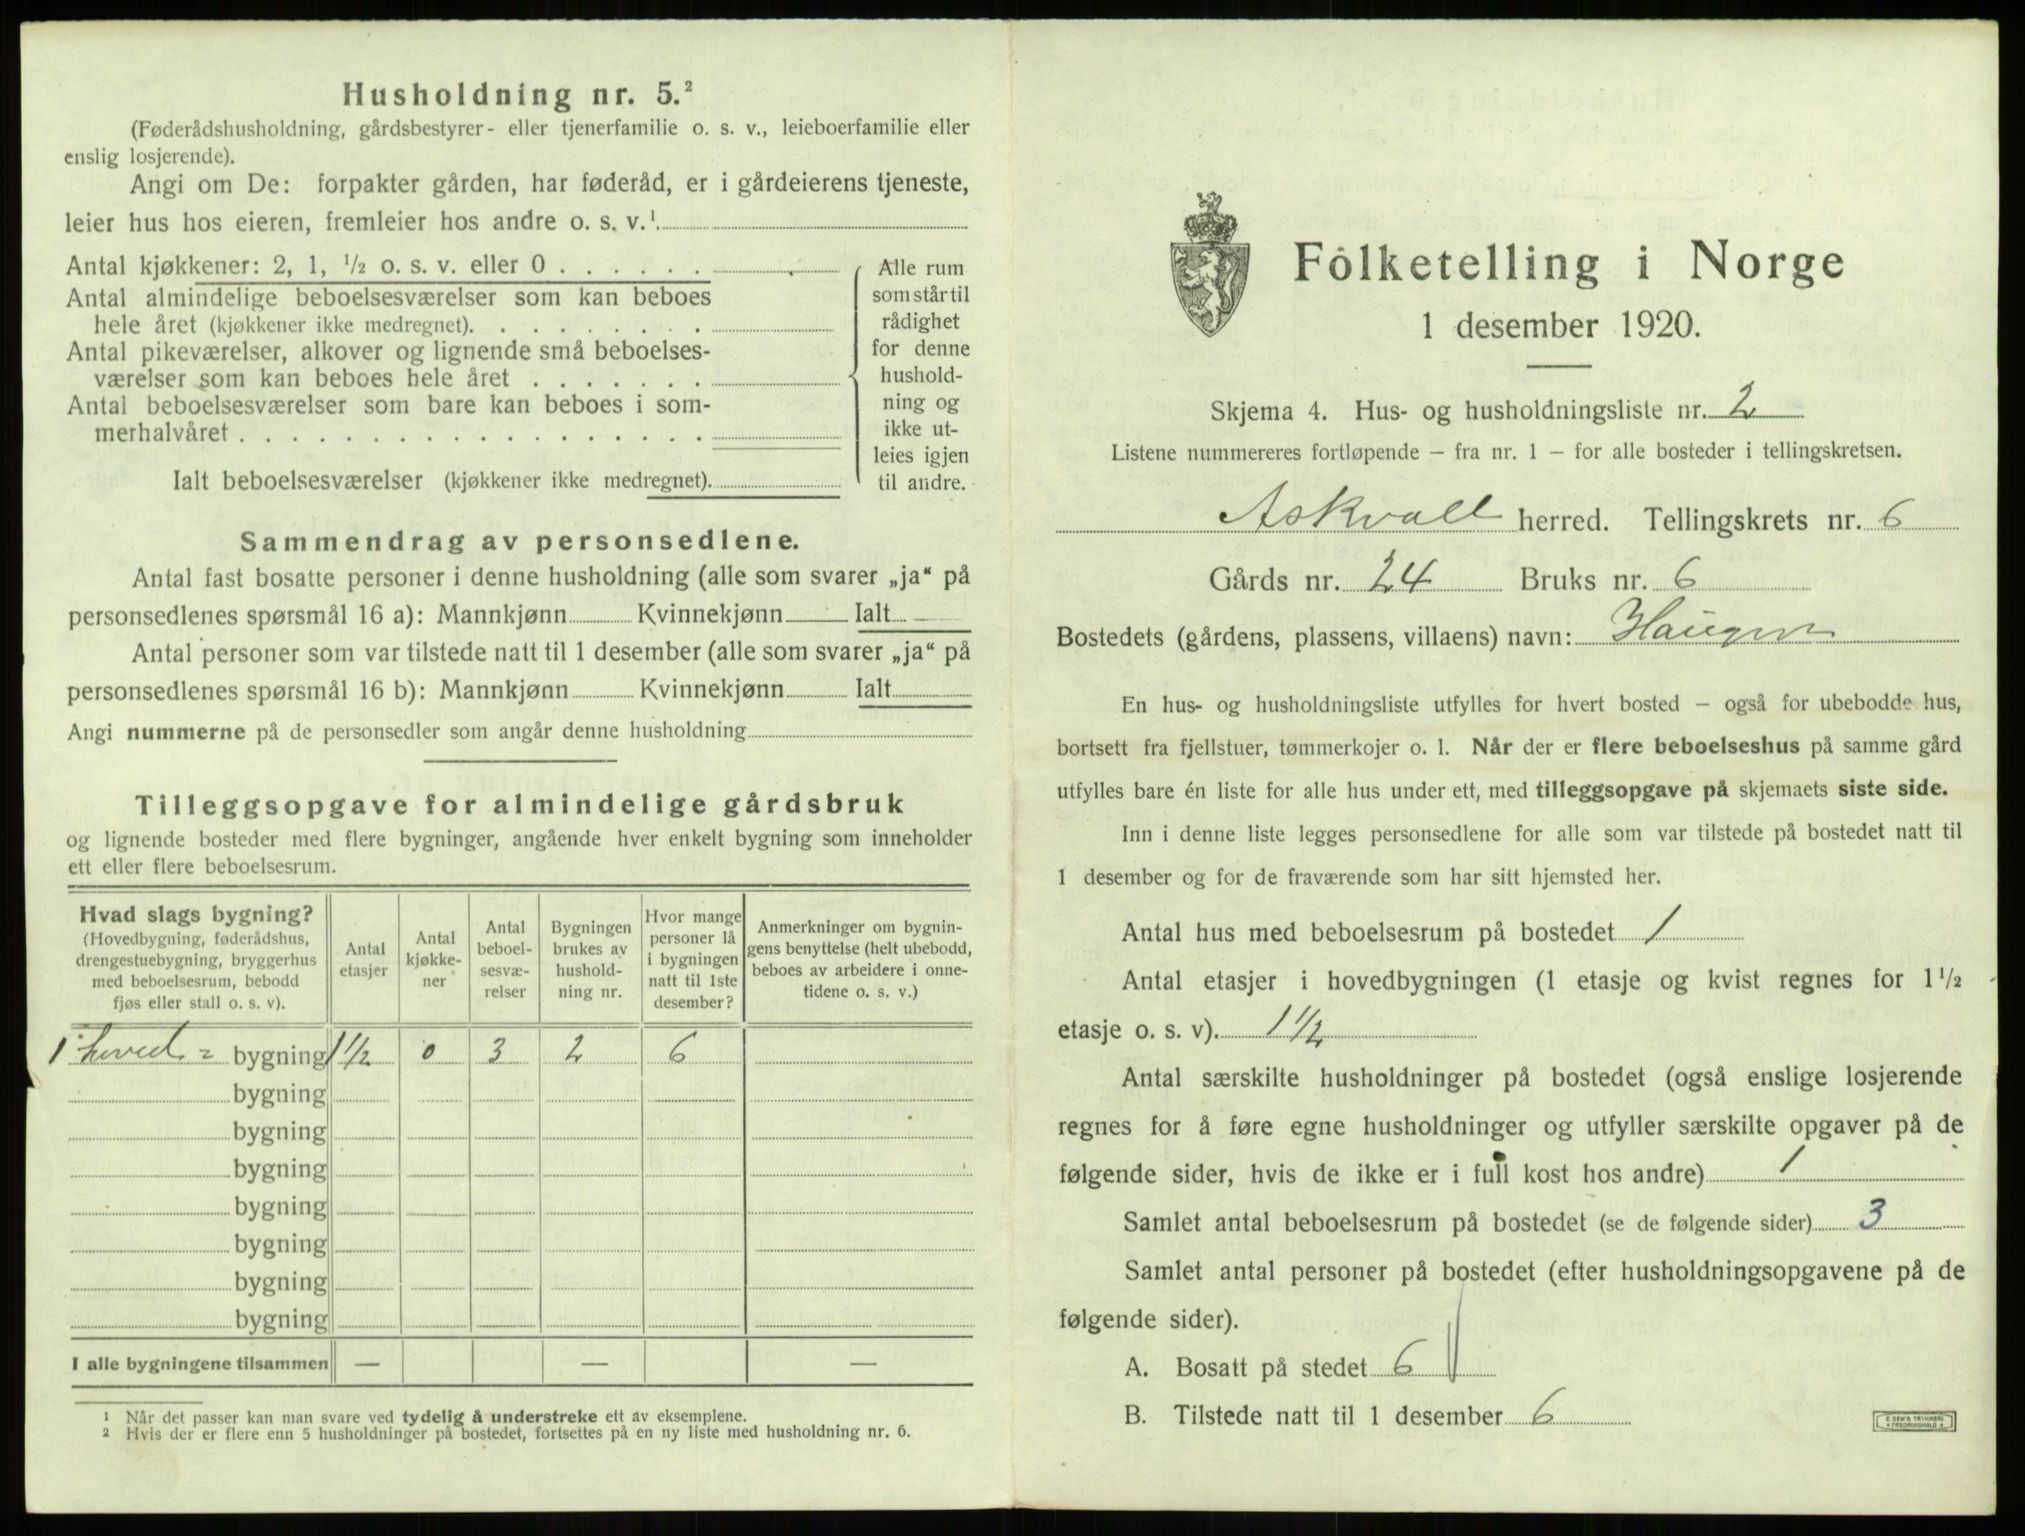 Husholdning nr. 5.²
(Føderådshusholdning, gårdsbestyrer- eller tjenerfamilie o. s. v., leieboerfamilie eller
enslig losjerende).
Angi om De: forpakter gården, har føderåd, er i gårdeierens tjeneste,
leier hus hos eieren, fremleier hos andre o. s. v.¹
Antal kjøkkener: 2, 1, ½ o. s. v. eller 0
Antal almindelige beboelsesværelser som kan beboes
hele året (kjøkkener ikke medregnet).
Antal pikeværelser, alkover og lignende små beboelses-
værelser som kan beboes hele året
Antal beboelsesværelser som bare kan beboes i som-
merhalvåret
Ialt beboelsesværelser (kjøkkener ikke medregnet).
Alle rum
som står til
rådighet
for denne
hushold-
ning og
ikke ut-
leies igjen
til andre.
Sammendrag av personsedlene.
Antal fast bosatte personer i denne husholdning (alle som svarer „ja“ på
personsedlenes spørsmål 16 a): Mannkjønn Kvinnekjønn Ialt
Antal personer som var tilstede natt til 1 desember (alle som svarer „ja“ på
personsedlenes spørsmål 16 b): Mannkjønn Kvinnekjønn Ialt
Angi nummerne på de personsedler som angår denne husholdning
Tilleggsopgave for almindelige gårdsbruk
og lignende bosteder med flere bygninger, angående hver enkelt bygning som inneholder
ett eller flere beboelsesrum.
Hvad slags bygning?
(Hovedbygning, føderådshus,
drengestuebygning, bryggerhus
med beboelsesrum, bebodd
fjøs eller stall o. s. v).
Antal
etasjer
Antal
kjøkke-
ner
Antal
beboel-
sesvæ-
relser
Bygningen
brukes av
hushold-
ning nr.
Hvor mange
personer lå
i bygningen
natt til 1ste
desember?
Anmerkninger om bygnin-
gens benyttelse (helt ubebodd,
beboes av arbeidere i onne-
tidene o. s. v.)
1 hoved= bygning 1½ 0 3 2 6
bygning
bygning
bygning
bygning
bygning
bygning
bygning
I alle bygningene tilsammen — — —
1 Når det passer kan man svare ved tydelig å understreke ett av eksemplene.
2 Hvis der er flere enn 5 husholdninger på bostedet, fortsettes på en ny liste med husholdning nr. 6.
Folketelling i Norge
1 desember 1920.
Skjema 4. Hus- og husholdningsliste nr. 2
Listene nummereres fortløpende – fra nr. 1 – for alle bosteder i tellingskretsen.
Askvoll herred. Tellingskrets nr. 6
Gårds nr. 24 Bruks nr. 6
Bostedets (gårdens, plassens, villaens) navn: Haugen
En hus- og husholdningsliste utfylles for hvert bosted – også for ubebodde hus,
bortsett fra fjellstuer, tømmerkojer o. l. Når der er flere beboelseshus på samme gård
utfylles bare én liste for alle hus under ett, med tilleggsopgave på skjemaets siste side.
Inn i denne liste legges personsedlene for alle som var tilstede på bostedet natt til
1 desember og for de fraværende som har sitt hjemsted her.
Antal hus med beboelsesrum på bostedet 1
Antal etasjer i hovedbygningen (1 etasje og kvist regnes for 1½
etasje o. s. v). 1½
Antal særskilte husholdninger på bostedet (også enslige losjerende
regnes for å føre egne husholdninger og utfyller særskilte opgaver på de
følgende sider, hvis de ikke er i full kost hos andre) 1
Samlet antal beboelsesrum på bostedet (se de følgende sider) 3
Samlet antal personer på bostedet (efter husholdningsopgavene på de
følgende sider).
A. Bosatt på stedet 6
B. Tilstede natt til 1 desember 6
E. SEM'S TRYKKERI
FREDRIKSHALD